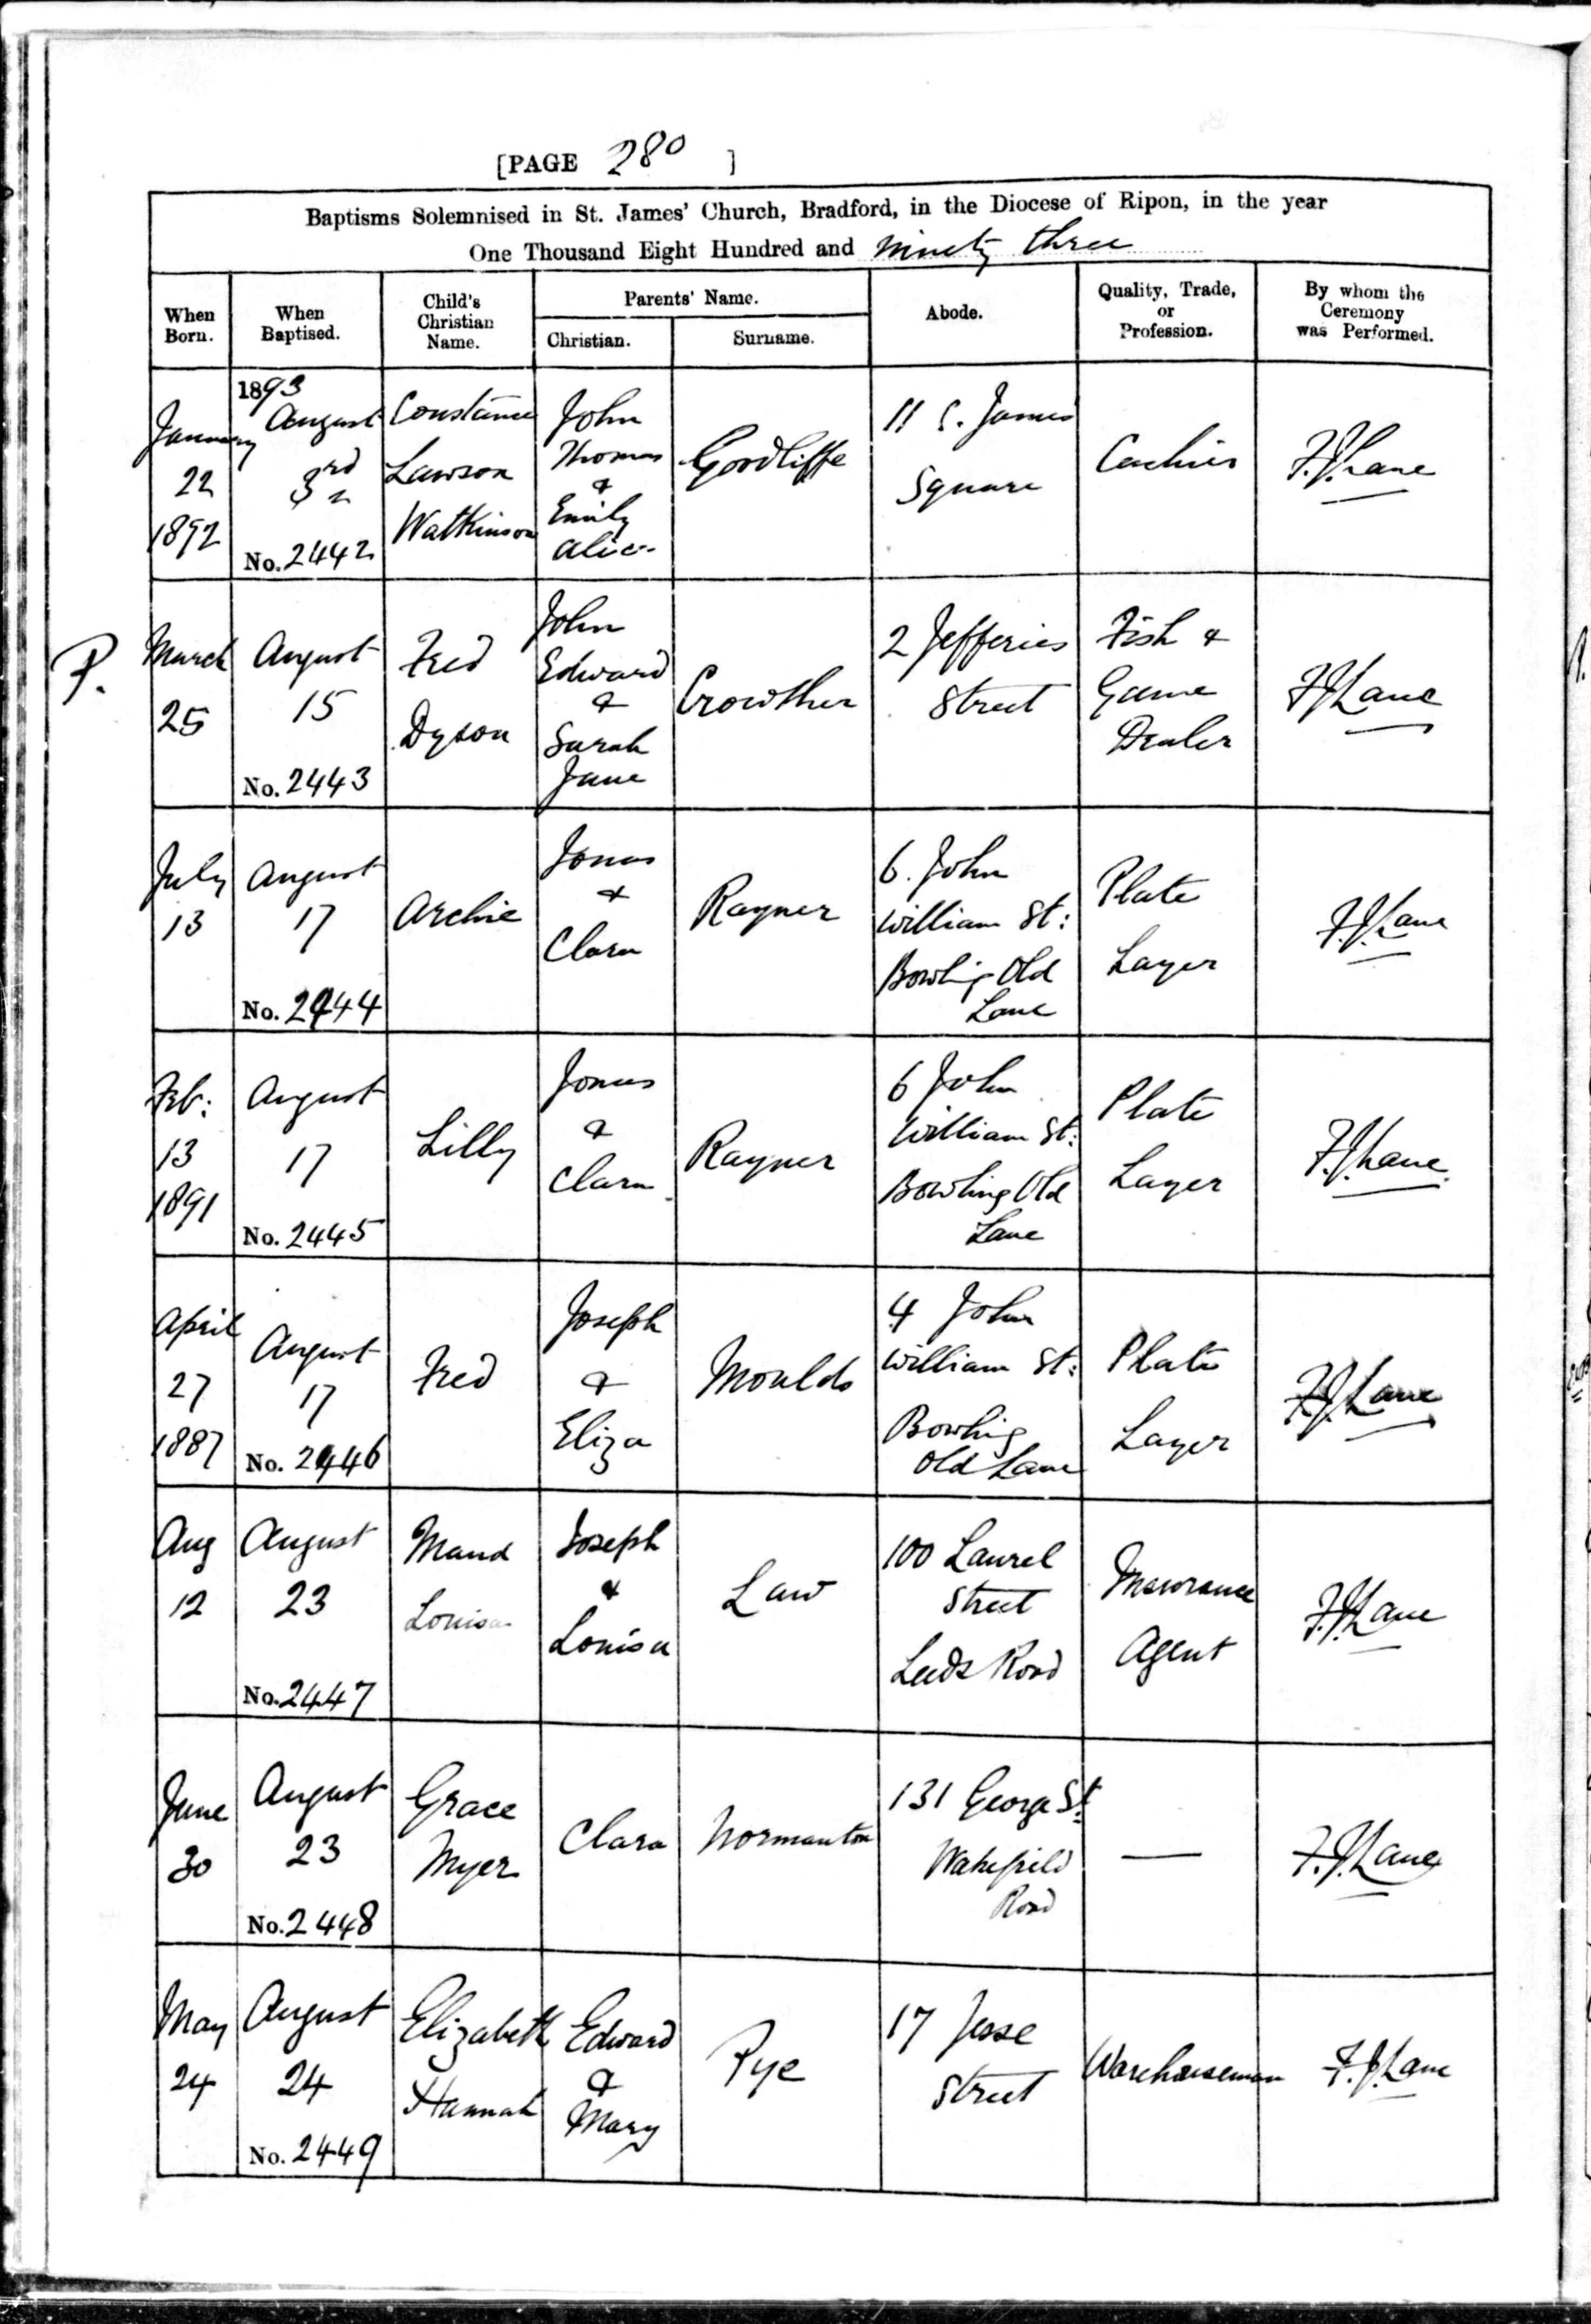 [PAGE 280 ]
Baptisms Solemnised in St. James' Church, Bradford, in the Diocese of Ripon, in the year
One Thousand Eight Hundred and ninety three
When Born.
When Baptised.
Child's Christian Name.
Parents' Name.
Christian.
Surname.
Abode.
Quality, Trade, or Profession.
By whom the Ceremony was Performed.
January
22
1892
1893
August
3rd
No. 2442
Constance
Lawson
Watkinson
John
Thomas
&
Emily
Alice
Goodliffe
11 S. James
Square
Cashier
F.J. Lane
P.
March
25
August
15
No. 2443
Fred
Dyson
John
Edward
&
Sarah
Jane
Crowther
2 Jefferies
Street
Fish &
Game
Dealer
F J Lane
July
13
August
17
No. 2444
Archie
Jonas
&
Clara
Rayner
6. John
William St:
Bowling Old
Lane
Plate
Layer
F.J. Lane
Feb:
13
1891
August
17
No. 2445
Lilly
Jonas
&
Clara
Rayner
6 John
William St:
Bowling Old
Lane
Plate
Layer
F.J. Lane
April
27
1887
August
17
No. 2446
Fred
Joseph
&
Eliza
Moulds
4 John
William St:
Bowling
Old Lane
Plate
Layer
F.J. Lane
Aug
12
August
23
No. 2447
Maud
Louisa
Joseph
&
Louisa
Law
100 Laurel
Street
Leeds Road
Insurance
Agent
F.J. Lane
June
30
August
23
No. 2448
Grace
Myer
Clara
Normanton
131 George St
Wakefield
Road
—
F.J. Lane
May
24
August
24
No. 2449
Elizabeth
Hannah
Edward
&
Mary
Pye
17 Jesse
Street
Warehouseman
F.J. Lane